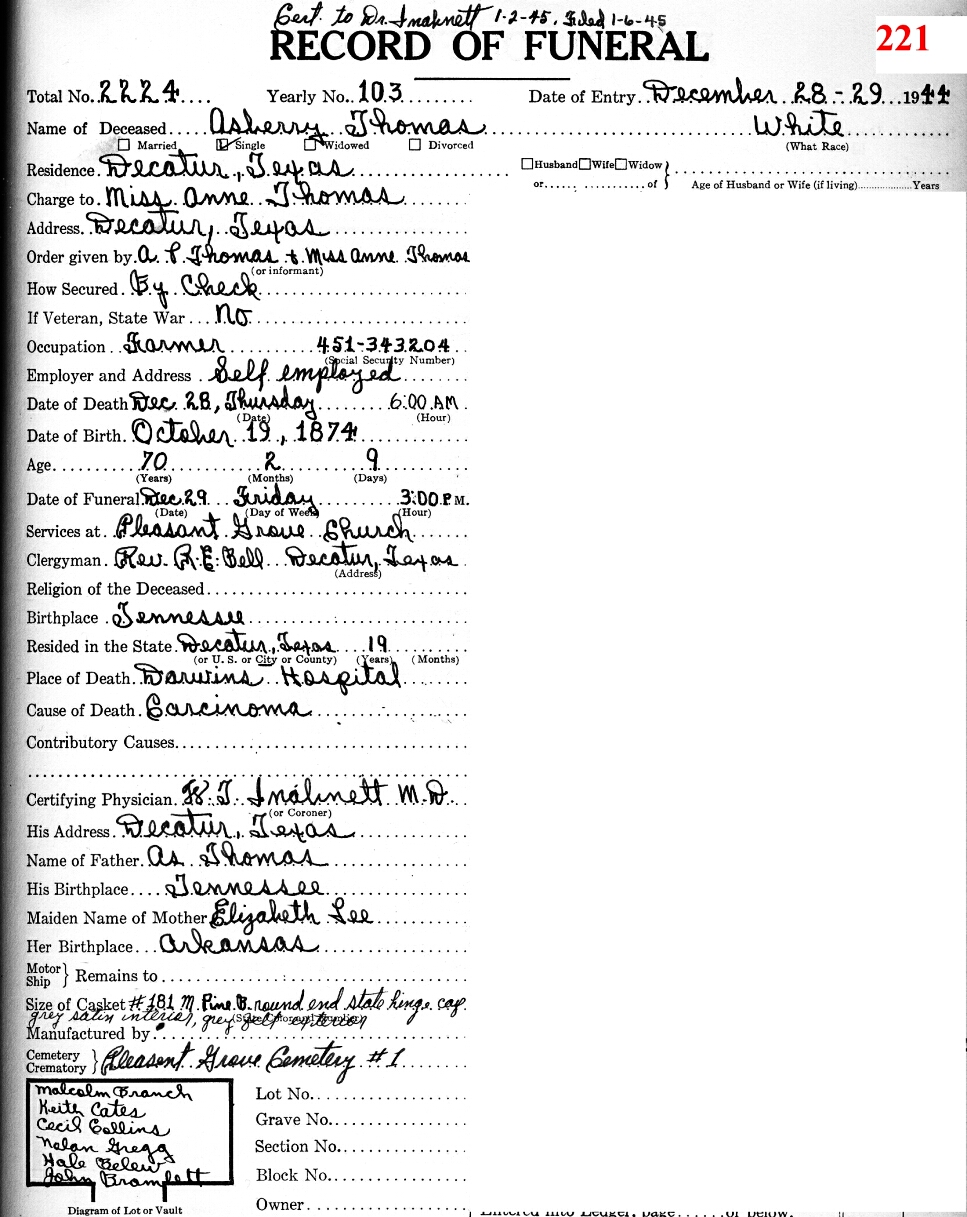 Cert. to Dr. Inabnett 1-2-45. Filed 1-6-45
RECORD OF FUNERAL
221
Total No. 2224 Yearly No. 103 Date of Entry December 28-29 1944
Name of Deceased Asberry Thomas White
Married Single Widowed Divorced (What Race)
Residence Decatur, Texas Husband Wife Widow
or of Age of Husband or Wife (if living) Years
Charge to Miss Anne Thomas
Address Decatur, Texas
Order given by A. P. Thomas & Miss Anne Thomas
(or informant)
How Secured By Check
If Veteran, State War No
Occupation Farmer 451-343204
(Social Security Number)
Employer and Address Self employed
Date of Death Dec. 28, Thursday 6:00 AM
(Date) (Hour)
Date of Birth October 19, 1874
Age 70 2 9
(Years) (Months) (Days)
Date of Funeral Dec 29 Friday 3:00 P.M.
(Date) (Day of Week) (Hour)
Services at Pleasant Grove Church
Clergyman Rev. R. E. Bell Decatur, Texas
(Address)
Religion of the Deceased
Birthplace Tennessee
Resided in the State Decatur, Texas 19
(or U. S. or City or County) (Years) (Months)
Place of Death Darwins Hospital
Cause of Death Carcinoma
Contributory Causes
Certifying Physician Inabnett M.D.
(or Coroner)
His Address Decatur, Texas
Name of Father As Thomas
His Birthplace Tennessee
Maiden Name of Mother Elizabeth Lee
Her Birthplace Arkansas
Motor
Ship } Remains to
Size of Casket #181 M. Pine B. round end state hinge cap.
grey satin interior, grey exterior
Manufactured by
Cemetery
Crematory } Pleasant Grove Cemetery #1
Malcolm Branch
Keith Cates
Cecil Collins
Nolan Gregg
Hale Belew
John Bramlett
Diagram of Lot or Vault
Lot No.
Grave No.
Section No.
Block No.
Owner
Entered into Ledger, page or below.